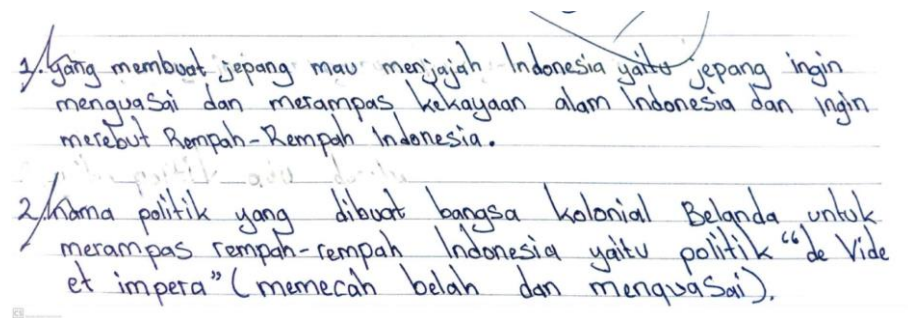 1. yang membuat jepang mau menjajah Indonesia yaitu jepang ingin
menguasai dan merampas kekayaan alam Indonesia dan ingin
merebut Rempah-Rempah Indonesia.
2. Nama politik yang dibuat bangsa kolonial Belanda untuk
merampas rempah-rempah Indonesia yaitu politik “de Vide
et impera” (memecah belah dan menguasai).